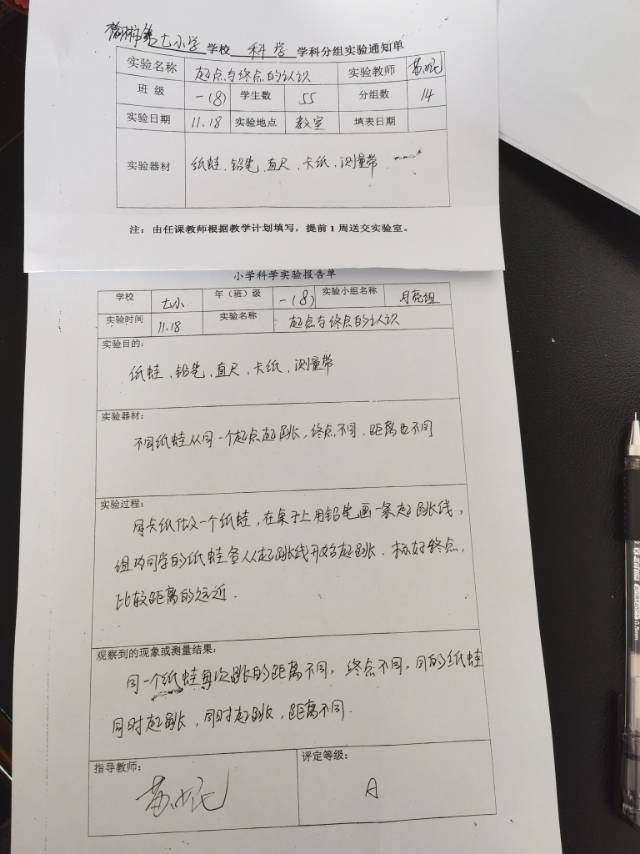 第七小学 学校 科学 学科分组实验通知单
实验名称 起点与终点的认识 实验教师
班 级 一(8) 学生数 55 分组数 14
实验日期 11.18 实验地点 教室 填表日期
实验器材 纸蛙、铅笔、直尺、卡纸、测量带
注：由任课教师根据教学计划填写，提前1周送交实验室。
小学科学实验报告单
学校 七小 年（班）级 一(8) 实验小组名称 月亮组
实验时间 11.18 实验名称 起点与终点的认识
实验目的：
纸蛙、铅笔、直尺、卡纸、测量带
实验器材：
不同纸蛙从同一个起点起跳，终点不同、距离也不同
实验过程：
用卡纸做一个纸蛙，在桌子上用铅笔画一条起跳线，
组内同学的纸蛙会从起跳线开始起跳、标好终点，
比较距离的远近.
观察到的现象或测量结果：
同一个纸蛙每次跳的距离不同，终点不同，同的纸蛙
同时起跳，同时起跳，距离不同.
指导教师： 评定等级：
A